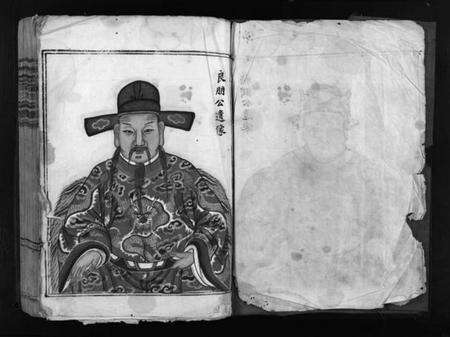 良朋公遺像